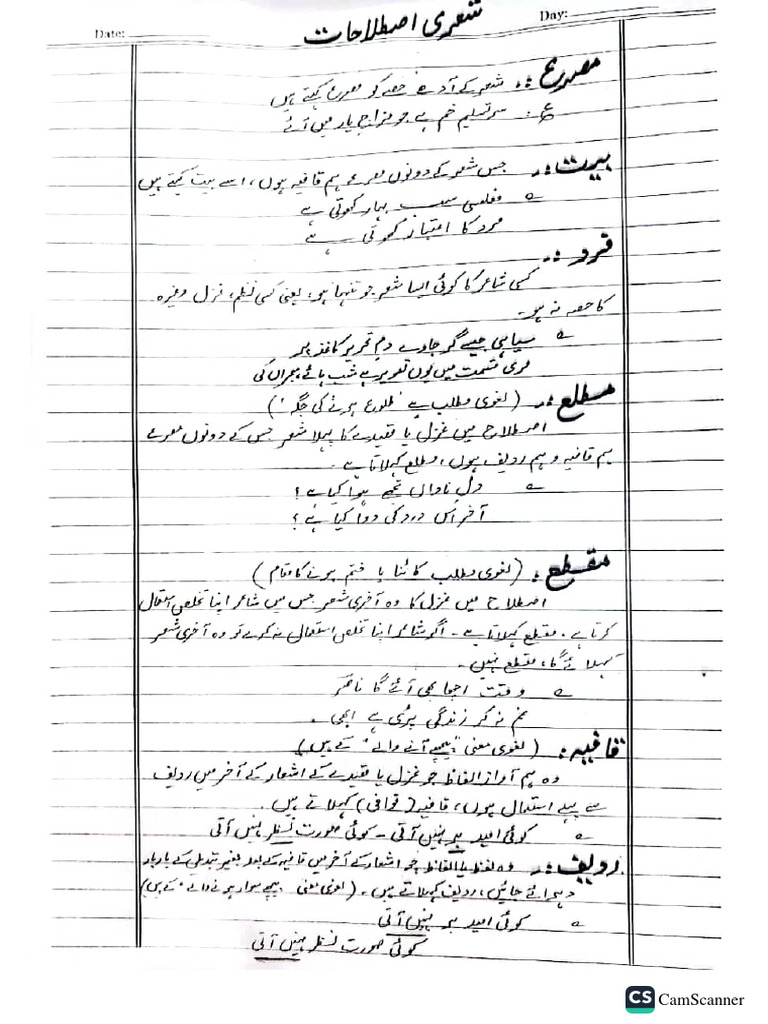 Date: Day:
شعری اصطلاحات
مصرع :. شعر کے آدھے حصے کو مصرع کہتے ہیں
ع: سر تسلیم خم ہے جو مزاج یار میں آئے
بیت:. جس شعر کے دونوں مصرعے ہم قافیہ ہوں، اسے بیت کہتے ہیں
؎ مفلسی سب بہار کھوتی ہے
مرد کا اعتبار کھوتی ہے
فرد :.
کسی شاعر کا کوئی ایسا شعر جو تنہا ہو، یعنی کسی نظم، غزل وغیرہ
کا حصہ نہ ہو۔
؎ سیاہی جیسے گر جاوے دم تحریر کاغذ پر
مری قسمت میں یوں تصویر ہے شب ہائے ہجراں کی
مطلع:. (لغوی مطلب ہے "طلوع ہونے کی جگہ")
اصطلاح میں غزل یا قصیدے کا پہلا شعر جس کے دونوں مصرعے
ہم قافیہ و ہم ردیف ہوں، مطلع کہلاتا ہے۔
؎ دل ناداں تجھے ہوا کیا ہے؟
آخر اس درد کی دوا کیا ہے؟
مقطع: (لغوی مطلب کاٹنا یا ختم ہونے کا مقام)
اصطلاح میں غزل کا وہ آخری شعر جس میں شاعر اپنا تخلص استعمال
کرتا ہے، مقطع کہلاتا ہے۔ اگر شاعر اپنا تخلص استعمال نہ کرے تو وہ آخری شعر
کہلائے گا، مقطع نہیں۔
؎ وقت اچھا بھی آئے گا ناصر
غم نہ کر زندگی پڑی ہے ابھی۔
قافیہ: (لغوی معنی "پیچھے آنے والے" کے ہیں)
وہ ہم آواز الفاظ جو غزل یا قصیدے کے اشعار کے آخر میں ردیف
سے پہلے استعمال ہوں، قافیہ (قوافی) کہلاتے ہیں۔
؎ کوئی امید بر نہیں آتی - کوئی صورت نظر نہیں آتی
ردیف:. وہ لفظ یا الفاظ جو اشعار کے آخر میں قافیہ کے بعد بغیر تبدیلی کے بار بار
دہرائے جائیں، ردیف کہلاتے ہیں۔ (لغوی معنی "پیچھے سوار ہونے والے" کے ہیں)
؎ کوئی امید بر نہیں آتی
کوئی صورت نظر نہیں آتی
CS CamScanner